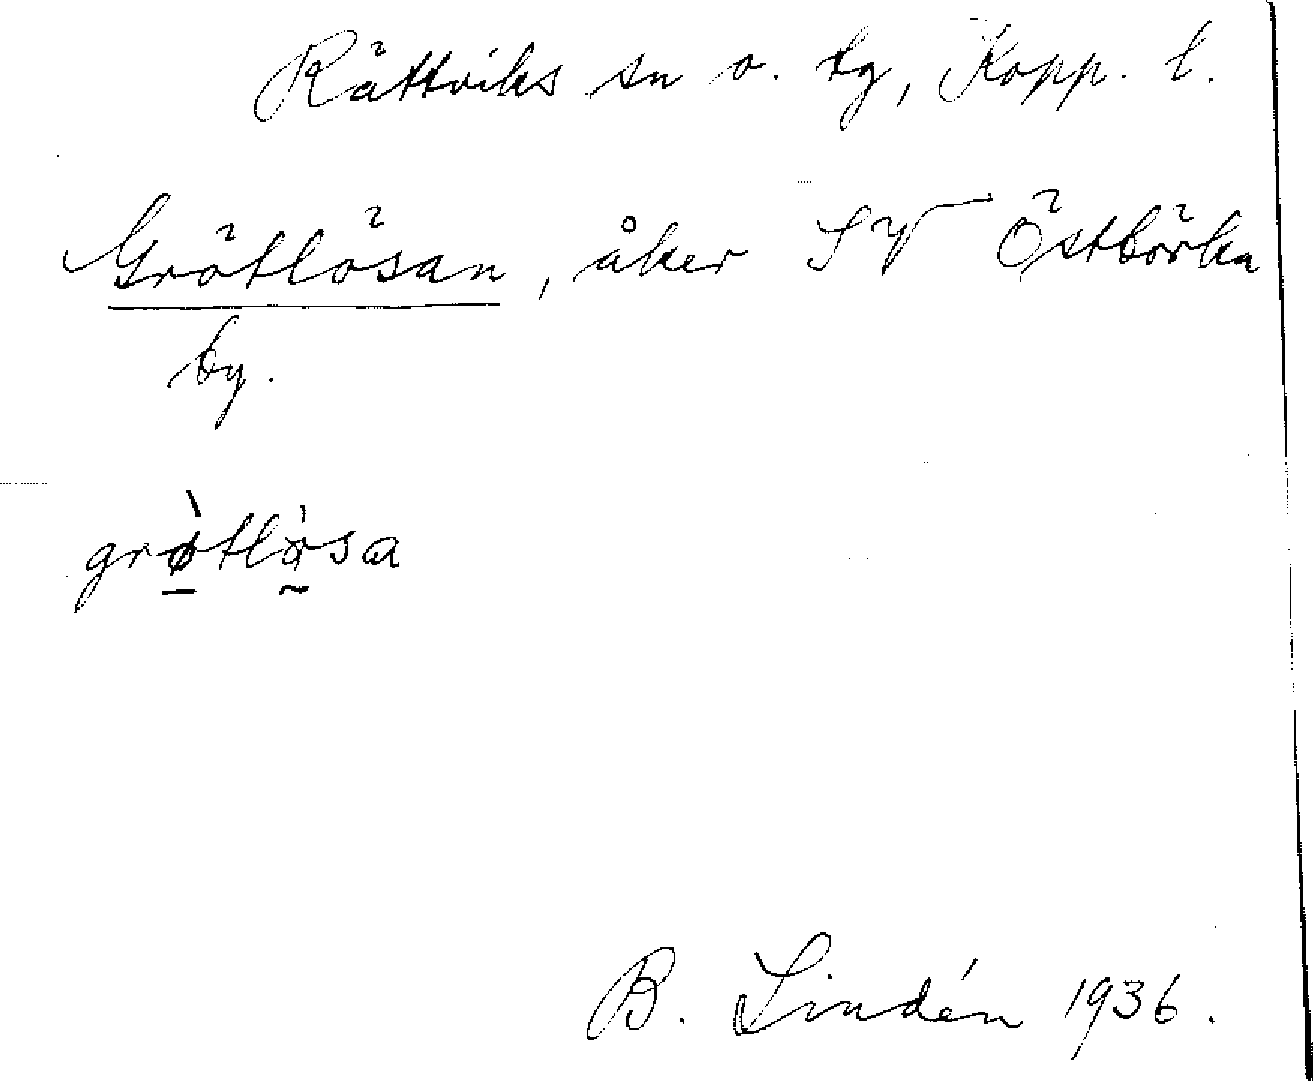 Rättviks sn o. tg, Kopp. l.
Grötlösan, åker SV Östbörka
by.
grø̀tlòsa
B. Lindén 1936.